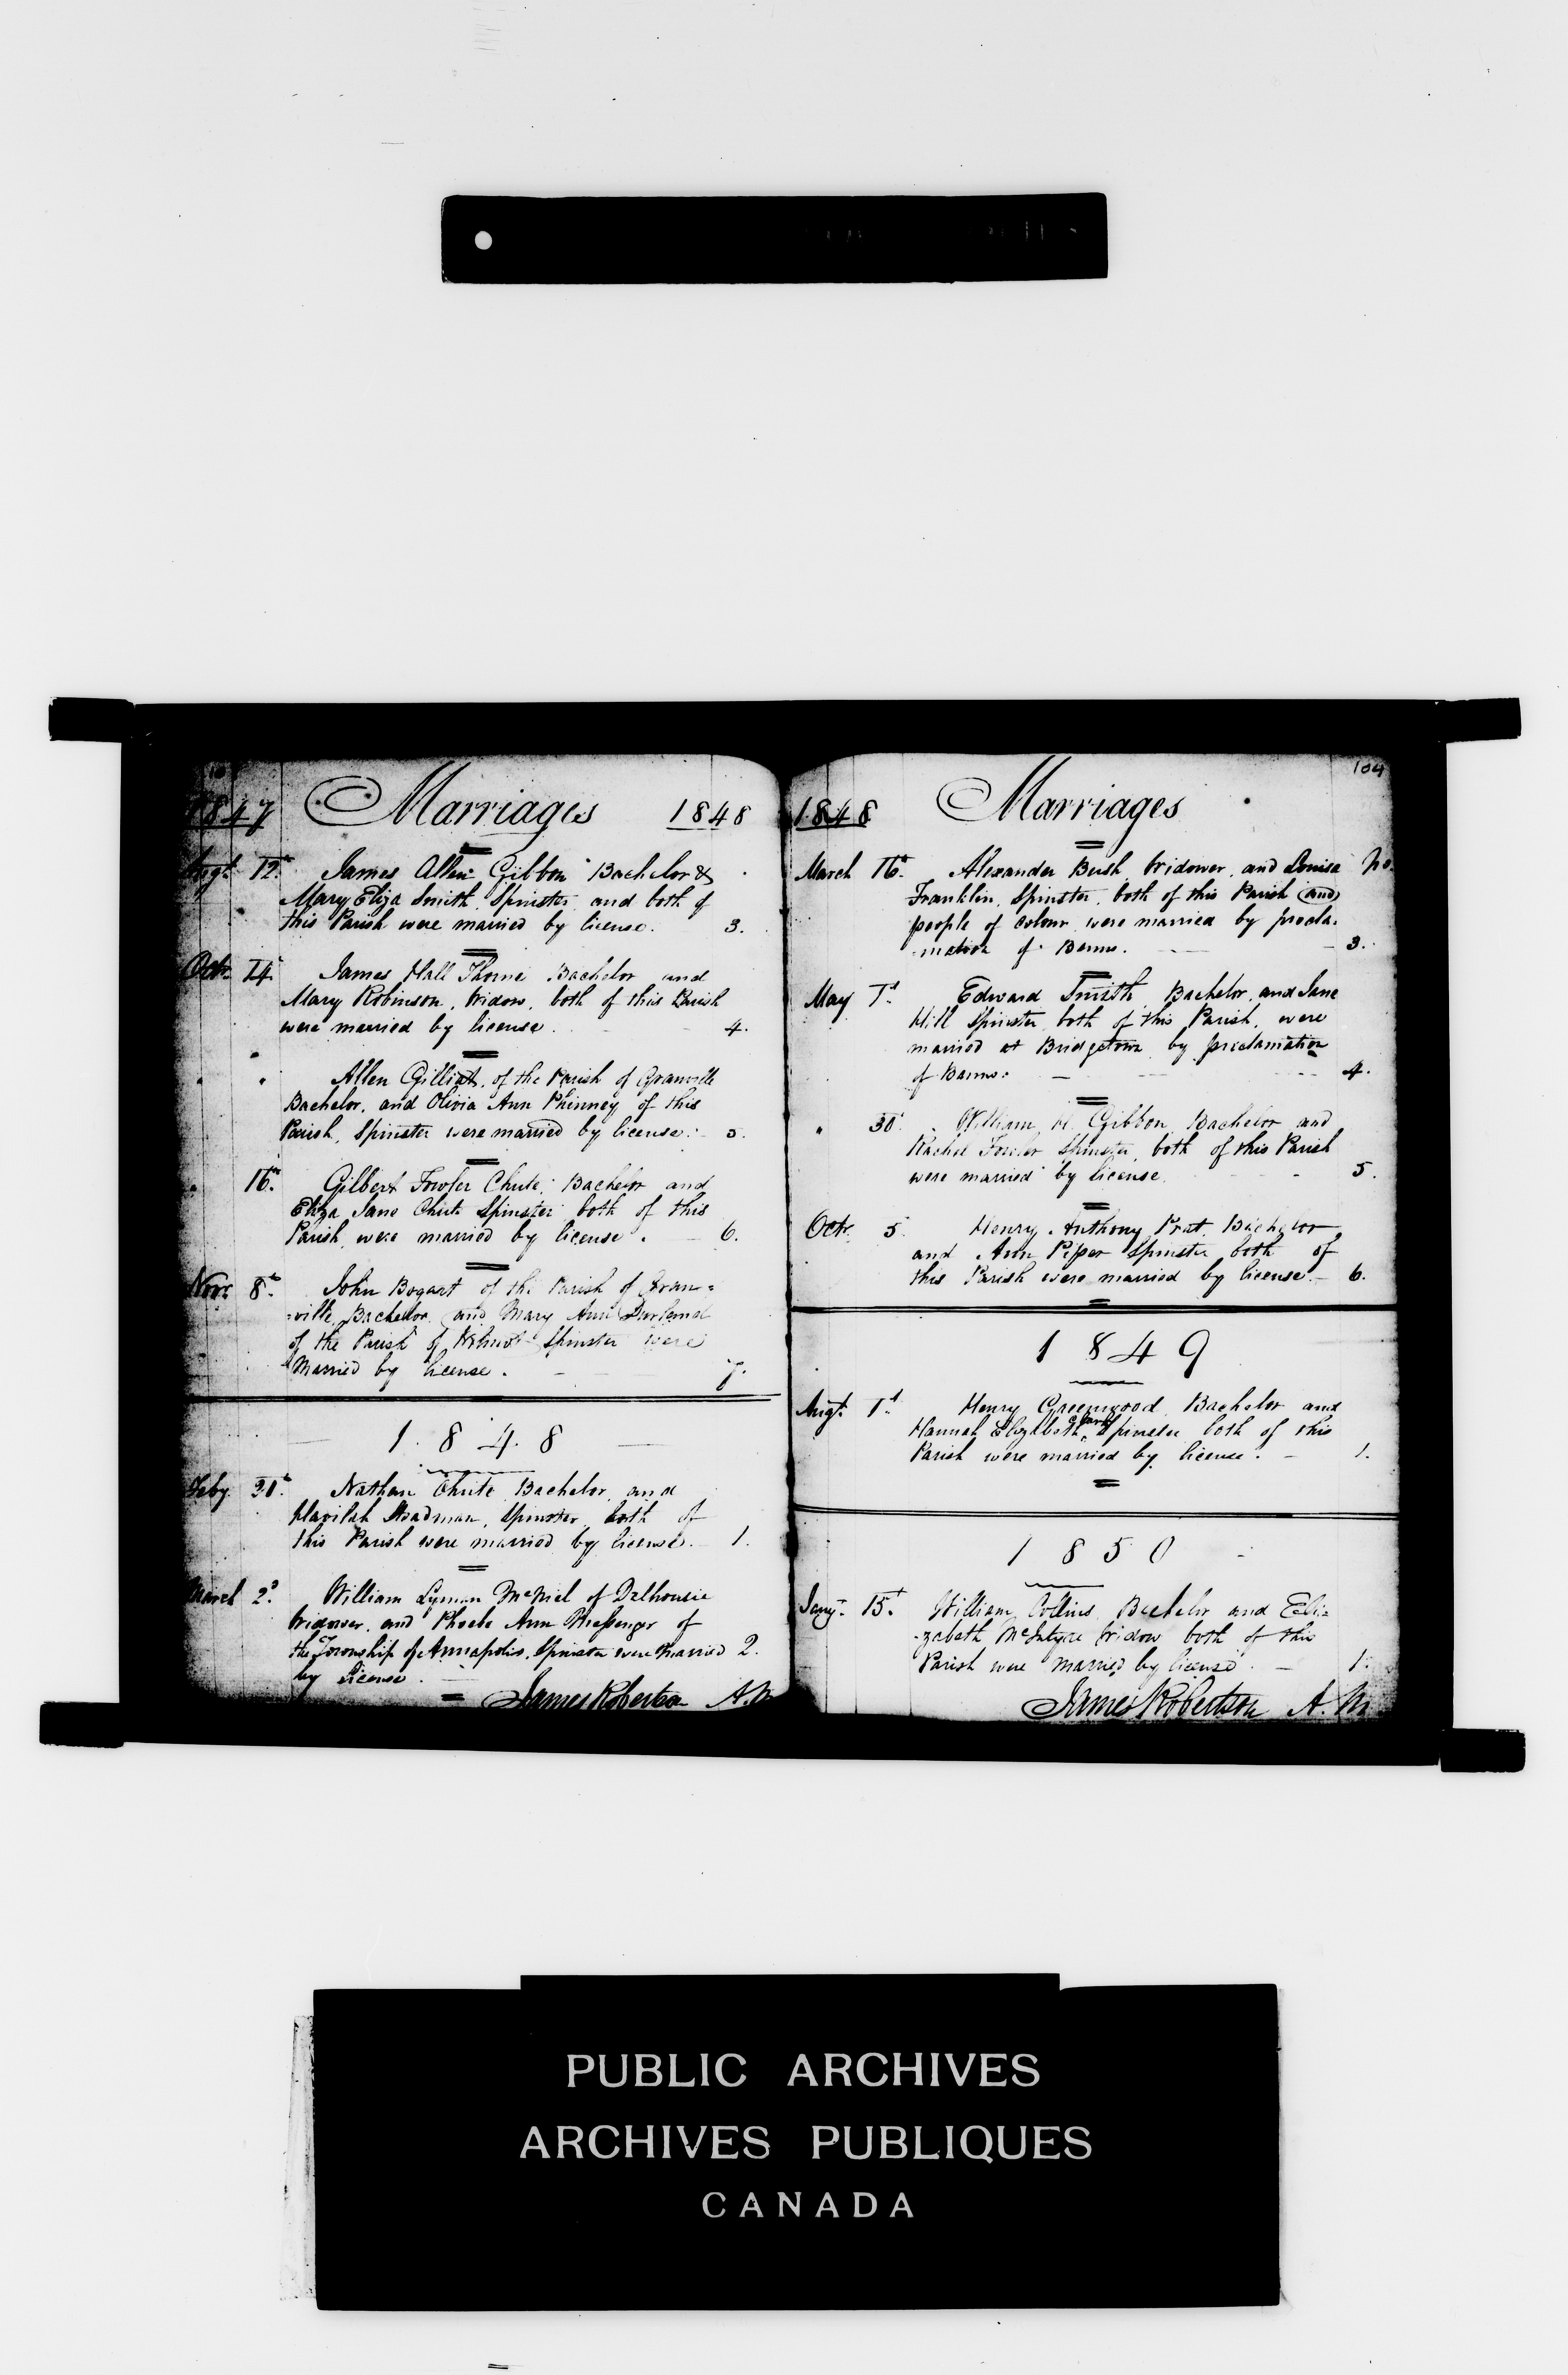 1847 Marriages 1848
Augt. 12th. James Allen Gibbon Bachelor &
Mary Eliza Smith Spinster and both of
this Parish were married by license. 3.
Octr. 14. James Hall Thorne Bachelor and
Mary Robinson, Widow, both of this Parish
were married by license. 4.
" " Allen Gilliat, of the Parish of Granville
Bachelor, and Olivia Ann Phinney of this
Parish, Spinster were married by license. 5.
" 16th. Gilbert Fowler Chute, Bachelor and
Eliza Jane Chute Spinster both of this
Parish, were married by license. 6.
Novr. 8th. John Bogart of the Parish of Gran=
=ville, Bachelor, and Mary Ann Durland
of the Parish of Wilmot Spinster were
Married by license. 7.
1848
Feby. Nathan Chute Bachelor, and
Havilah Steadman, Spinster, both of
this Parish were married by license. 1.
March 2d. William Lyman McNiel of Dalhousie
Widower, and Phoebe Ann Messenger of
the Township of Annapolis, Spinster were married 2.
by license.
James Robertson A.M
104
1848 Marriages
March 16th. Alexander Bush, Widower, and Louisa No.
Franklin, Spinster, both of this Parish (and)
people of colour were married by procla-
-mation of Banns. 3.
May 1st. Edward Smith, Bachelor, and Jane
Hill Spinster, both of this Parish, were
married at Bridgetown by proclamation
of Banns. 4.
" 30. William H. Gibbon, Bachelor and
Rachel Fowler Spinster, both of this Parish
were married by license. 5.
Octr. 5. Henry Anthony Prat, Bachelor,
and Ann Piper Spinster both of
this Parish were married by license. 6.
1849
Augt. 1st. Henry Greenwood Bachelor and
Hannah Elizabeth Clark Spinster both of this
Parish were married by license. 1.
1850
Jany. 15t. William Collins, Bachelor and Eli=
-zabeth McIntyre Widow both of this
Parish were Married by license. 1.
James Robertson A.M
PUBLIC ARCHIVES
ARCHIVES PUBLIQUES
CANADA